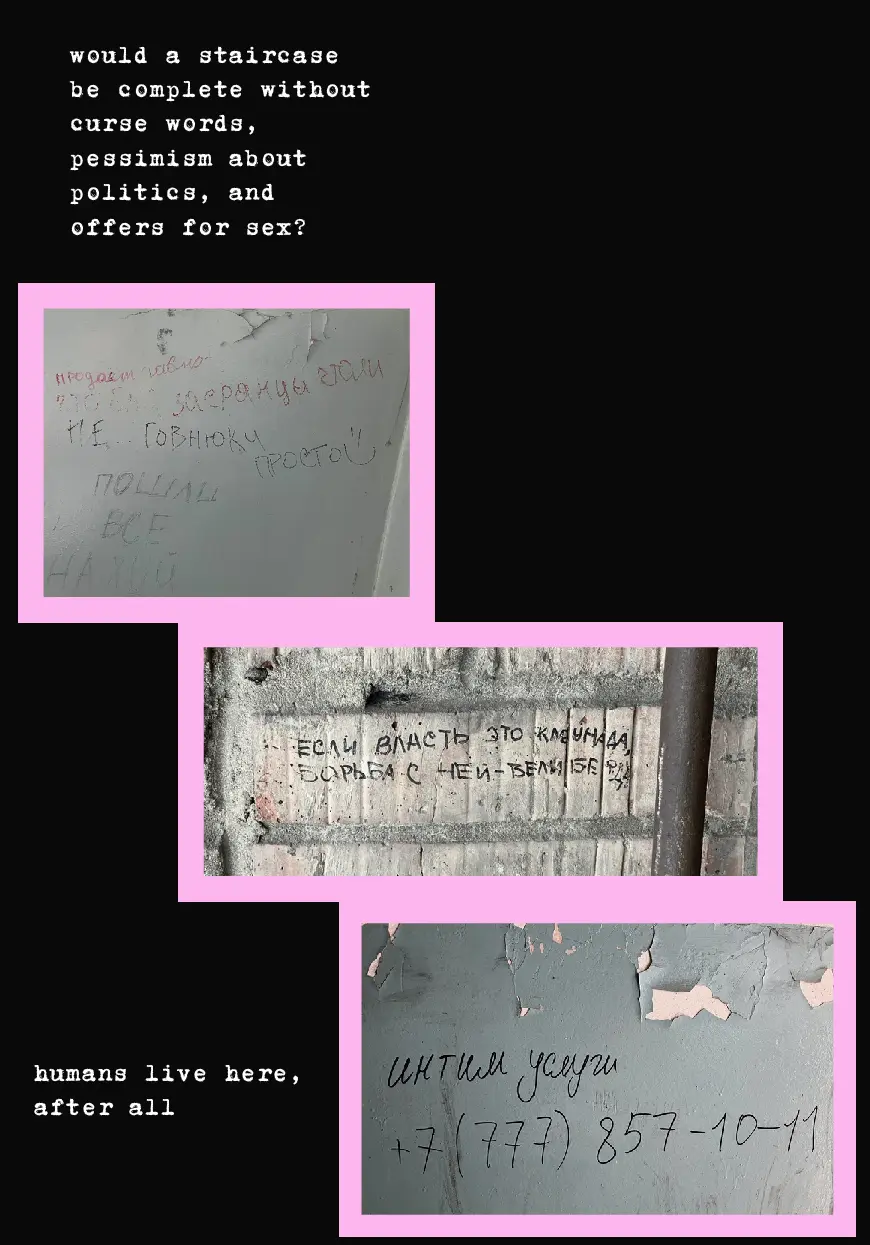 would a staircase
be complete without
curse words,
pessimism about
politics, and
offers for sex?
продаёт
засранцы
НЕ ГОВНЮКИ
ПРОСТО
ПОШЛИ
ВСЕ
НА ХУЙ
ЕСЛИ ВЛАСТЬ ЭТО КЛОУНАДА,
БОРЬБА С НЕЙ-ВЕЛИ БЕРДА
интим услуги
+7(777) 857-10-11
humans live here,
after all